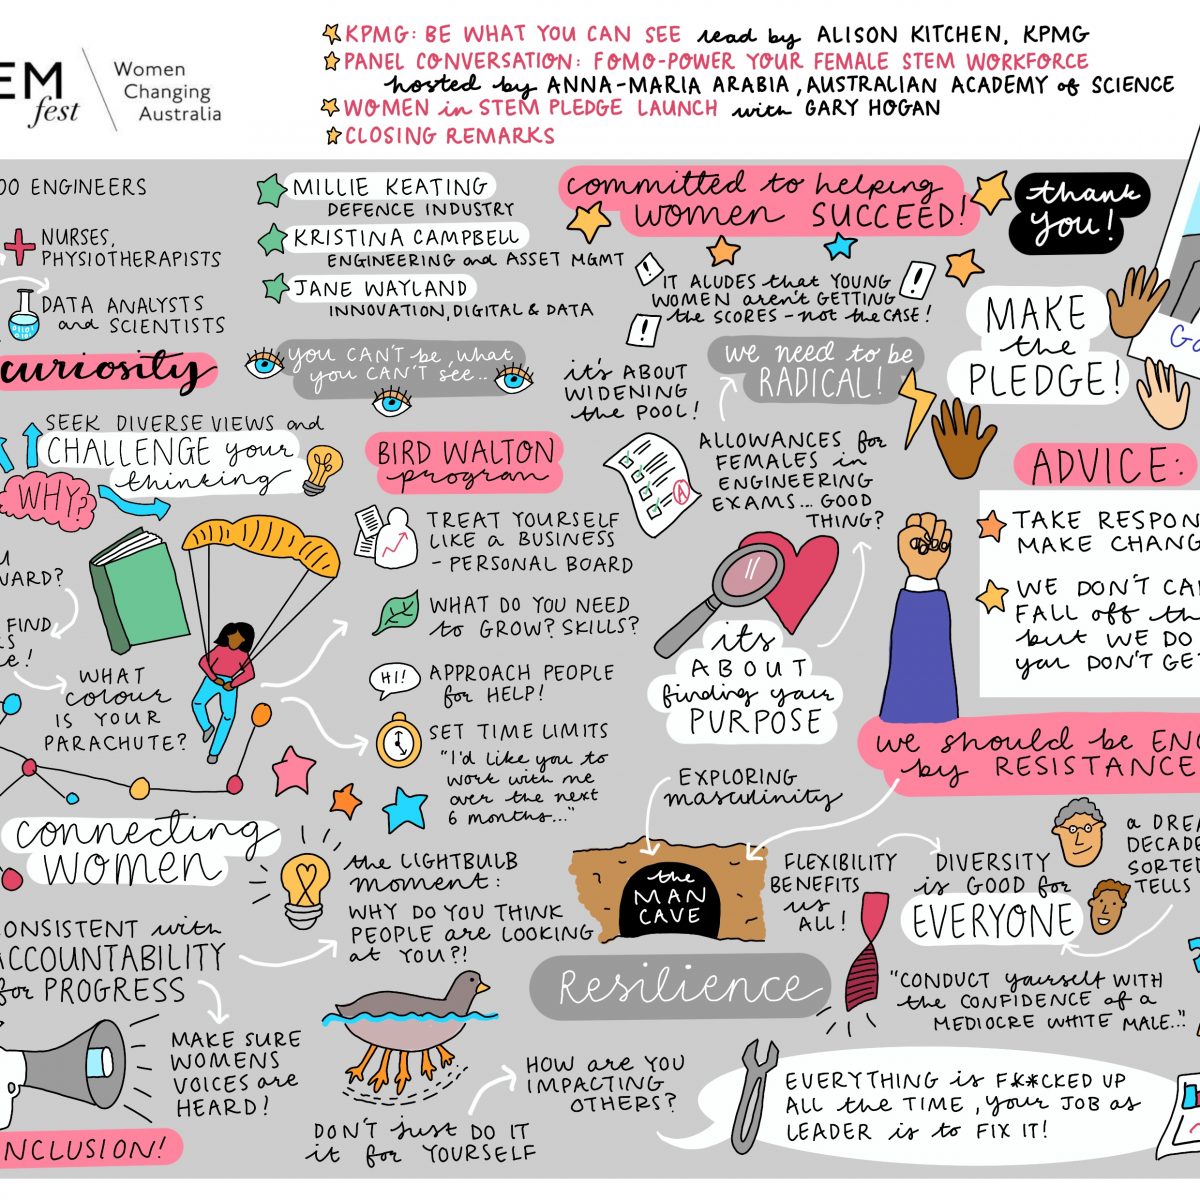 EM
fest
Women
Changing
Australia
KPMG: BE WHAT YOU CAN SEE read by ALISON KITCHEN, KPMG
PANEL CONVERSATION: FOMO-POWER YOUR FEMALE STEM WORKFORCE
hosted by ANNA-MARIA ARABIA, AUSTRALIAN ACADEMY of SCIENCE
WOMEN in STEM PLEDGE LAUNCH with GARY HOGAN
CLOSING REMARKS
00 ENGINEERS
NURSES,
PHYSIOTHERAPISTS
DATA ANALYSTS
and SCIENTISTS
MILLIE KEATING
DEFENCE INDUSTRY
KRISTINA CAMPBELL
ENGINEERING and ASSET MGMT
JANE WAYLAND
INNOVATION, DIGITAL & DATA
committed to helping
WOMEN SUCCEED!
thank
you!
IT ALUDES that YOUNG
WOMEN aren't GETTING
the SCORES - not the CASE!
MAKE
the
PLEDGE!
Ga
curiosity
you CAN'T be, what
you CAN'T see...
it's ABOUT
WIDENING
the POOL!
we need to be
RADICAL!
SEEK DIVERSE VIEWS and
CHALLENGE your
thinking
WHY?
BIRD WALTON
program
ALLOWANCES for
FEMALES in
ENGINEERING
EXAMS... GOOD
THING?
A
ADVICE:
TAKE RESPON
MAKE CHANG
WE DON'T CA
FALL off th
but WE DO
you DON'T GET
TREAT YOURSELF
LIKE a BUSINESS
- PERSONAL BOARD
WHAT DO YOU NEED
to GROW? SKILLS?
HI!
APPROACH PEOPLE
for HELP!
SET TIME LIMITS
"I'd like you to
work with me
over the next
6 months..."
U
WARD?
FIND
RS
e!
WHAT
colour
IS YOUR
PARACHUTE?
its
ABOUT
finding your
PURPOSE
we should be EN
by RESISTANCE
EXPLORING
masculinity
the
MAN
CAVE
connecting
WOMEN
the LIGHTBULB
moment:
WHY DO YOU THINK
PEOPLE are LOOKING
at YOU?!
FLEXIBILITY
BENEFITS
us
ALL!
DIVERSITY
is GOOD for
EVERYONE
a DREA
DECADE
SORTED
TELLS
ONSISTENT with
ACCOUNTABILITY
for PROGRESS
Resilience
"CONDUCT yourself WITH
the CONFIDENCE of a
MEDIOCRE WHITE MALE..."
MAKE SURE
WOMENS
VOICES are
HEARD!
HOW are YOU
IMPACTING
OTHERS?
DON'T just DO IT
it for YOURSELF
EVERYTHING is F**CKED UP
ALL the TIME, your JOB as
LEADER is to FIX IT!
NCLUSION!